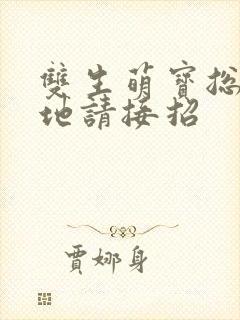 雙生萌寶總
地請接招
賈娜身